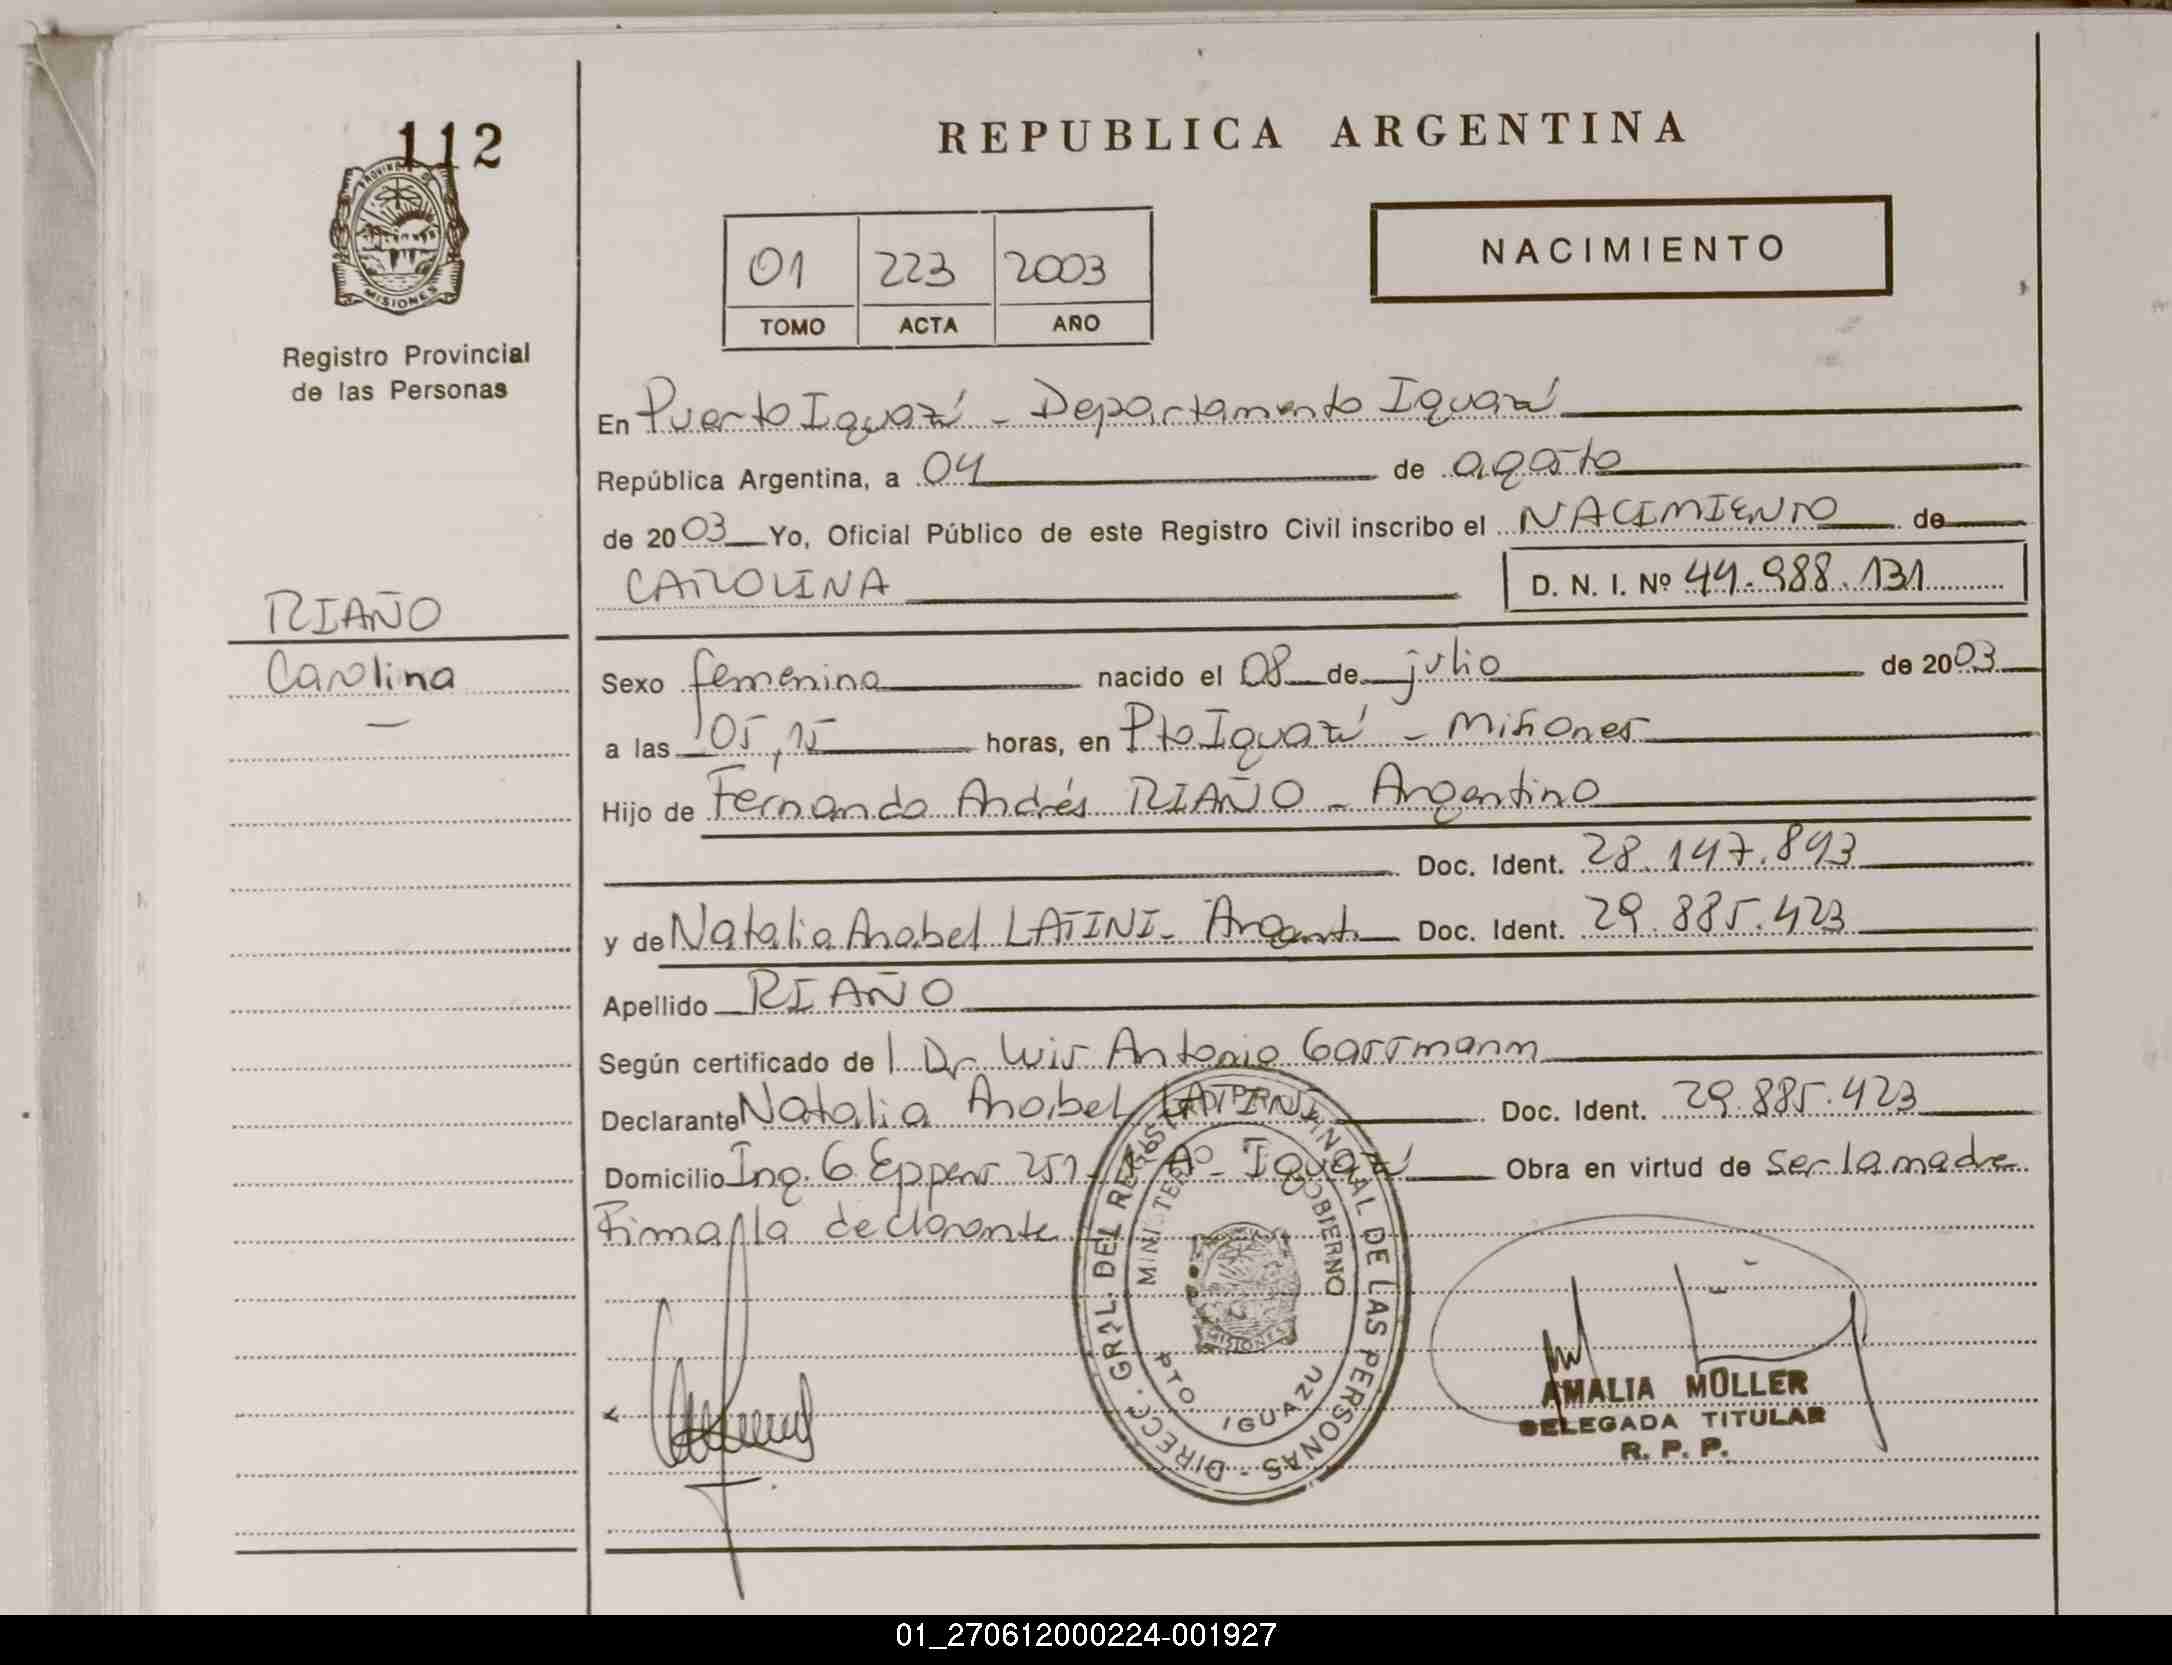 112
PROVINCIA DE
MISIONES
Registro Provincial
de las Personas
REPUBLICA ARGENTINA
01 223 2003
TOMO ACTA AÑO
NACIMIENTO
En Puerto Iguazú - Departamento Iguazú
República Argentina, a 04 de agosto
de 2003 Yo, Oficial Público de este Registro Civil inscribo el NACIMIENTO de
CAROLINA D. N. I. Nº 44.988.131
RIAÑO
Carolina
Sexo femenino nacido el 08 de julio de 2003
a las 05,15 horas, en Pto Iguazú - Misiones
Hijo de Fernando Andrés RIAÑO - Argentino
Doc. Ident. 28.147.893
y de Natalia Anabel LATINI - Argent. Doc. Ident. 29.885.423
Apellido RIAÑO
Según certificado de l Dr Luis Antonio Garrmann
Declarante Natalia Anabel LATINI Doc. Ident. 29.885.423
Domicilio Ing. G. Eppens 251 - Iguazú Obra en virtud de ser la madre
Firma la declarante
DIRECC. GRAL. DEL REGISTRO PROVINCIAL DE LAS PERSONAS -
MINISTERIO GOBIERNO
MISIONES
PTO. IGUAZU
AMALIA MOLLER
DELEGADA TITULAR
R. P. P.
01_270612000224-001927